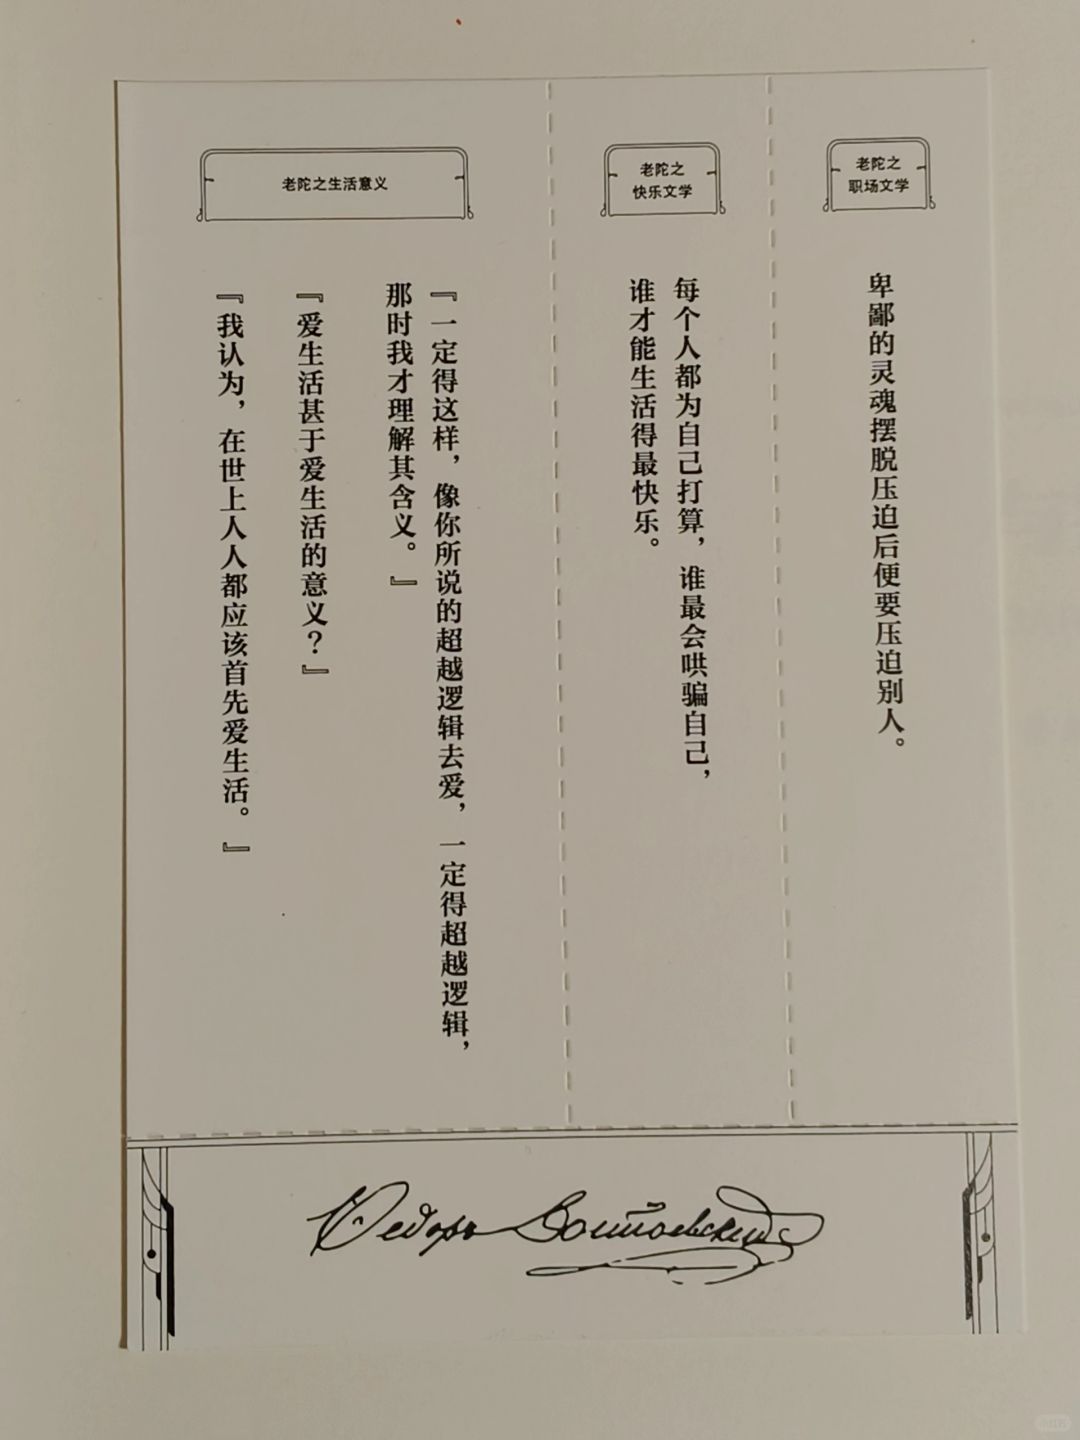 老陀之
职场文学
卑鄙的灵魂摆脱压迫后便要压迫别人。
老陀之
快乐文学
每个人都为自己打算，谁最会哄骗自己，
谁才能生活得最快乐。
老陀之生活意义
『一定得这样，像你所说的超越逻辑去爱，一定得超越逻辑，
那时我才理解其含义。』
『爱生活甚于爱生活的意义？』
『我认为，在世上人人都应该首先爱生活。』